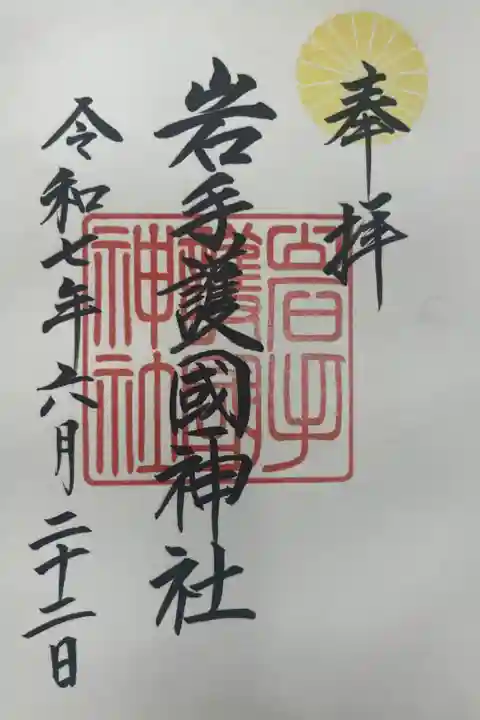 奉拝
岩手護國神社
岩手護國神社
令和七年六月二十二日